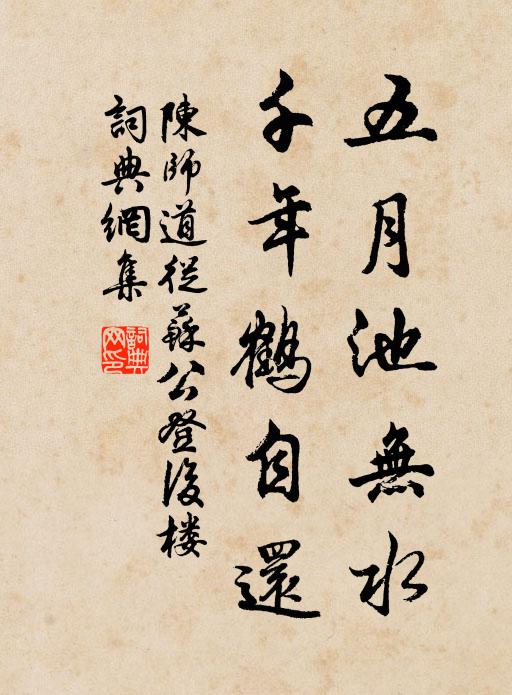 五月池無水
千年鶴自還
陳師道從蘇公登後樓
詞典網集
詞典
网印